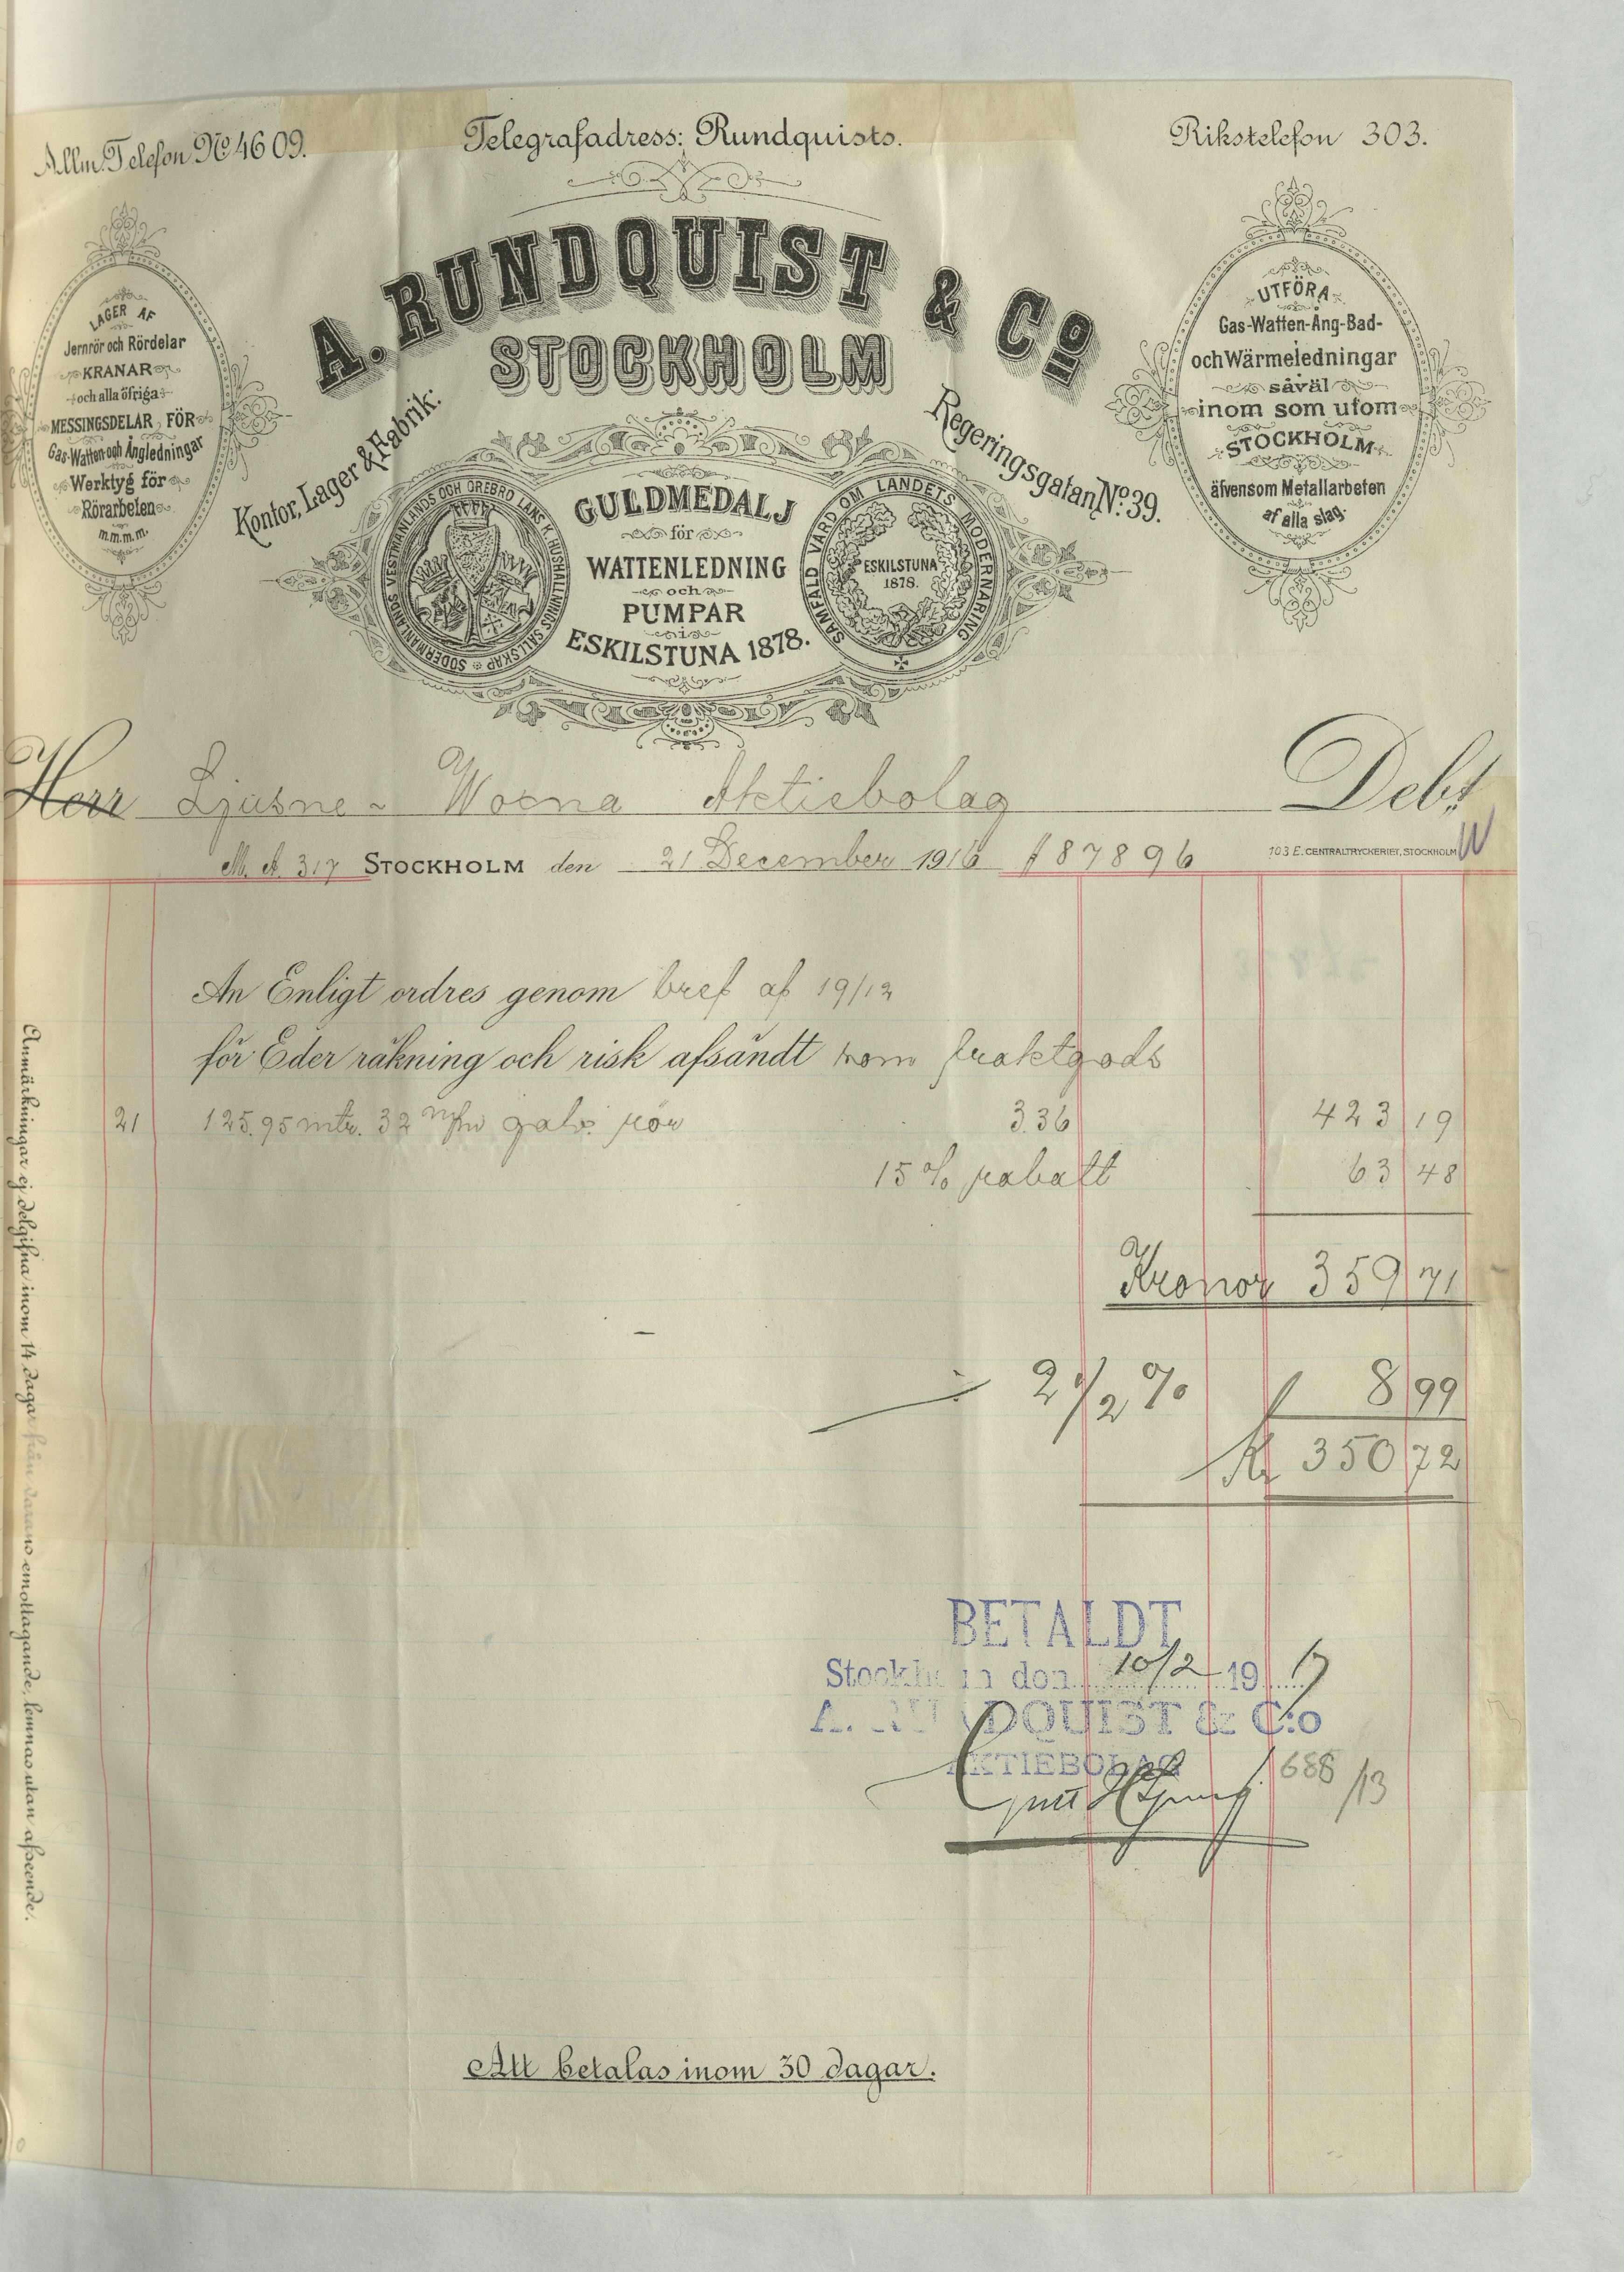 Allm. Telefon No 4609.
Telegrafadress: Rundquists.
Rikstelefon 303.
A. RUNDQUIST & Co
STOCKHOLM
Kontor, Lager & Fabrik:
Regeringsgatan No. 39.
LAGER AF
Jernrör och Rördelar
KRANAR
och alla öfriga
MESSINGSDELAR FÖR
Gas-Watten-och Ångledningar
Werktyg för
Rörarbeten
m.m.m.m.
UTFÖRA
Gas-Watten-Ång-Bad-
och Wärmeledningar
såväl
inom som utom
STOCKHOLM
äfvensom Metallarbeten
af alla slag.
SÖDERMANLANDS VESTMANLANDS OCH ÖREBRO LÄNS K. HUSHÅLLNINGS SÄLLSKAP
GULDMEDALJ
för
WATTENLEDNING
och
PUMPAR
i
ESKILSTUNA 1878.
SAMFÄLD VÅRD OM LANDETS MODERNÄRING
ESKILSTUNA
1878.
Herr Ljusne-Woxna Aktiebolag Debt
M. A. 317 STOCKHOLM den 21 December 1916 87896
103 E. CENTRALTRYCKERIET, STOCKHOLM
W
An Enligt ordres genom bref af 19/12
för Eder räkning och risk afsändt som fraktgods
21 125.95 mtr. 32 m/m galv. rör 3.36 423 19
15% rabatt 63 48
Kronor 359 71
÷ 2 1/2 % 8 99
Kr 350 72
BETALDT
Stockholm den 10/2 1917
A. RUNDQUIST & C:o
AKTIEBOLAG
688/13
Att betalas inom 30 dagar.
Anmärkningar ej delgifna inom 14 dagar från varans emottagande, lemnas utan afseende.